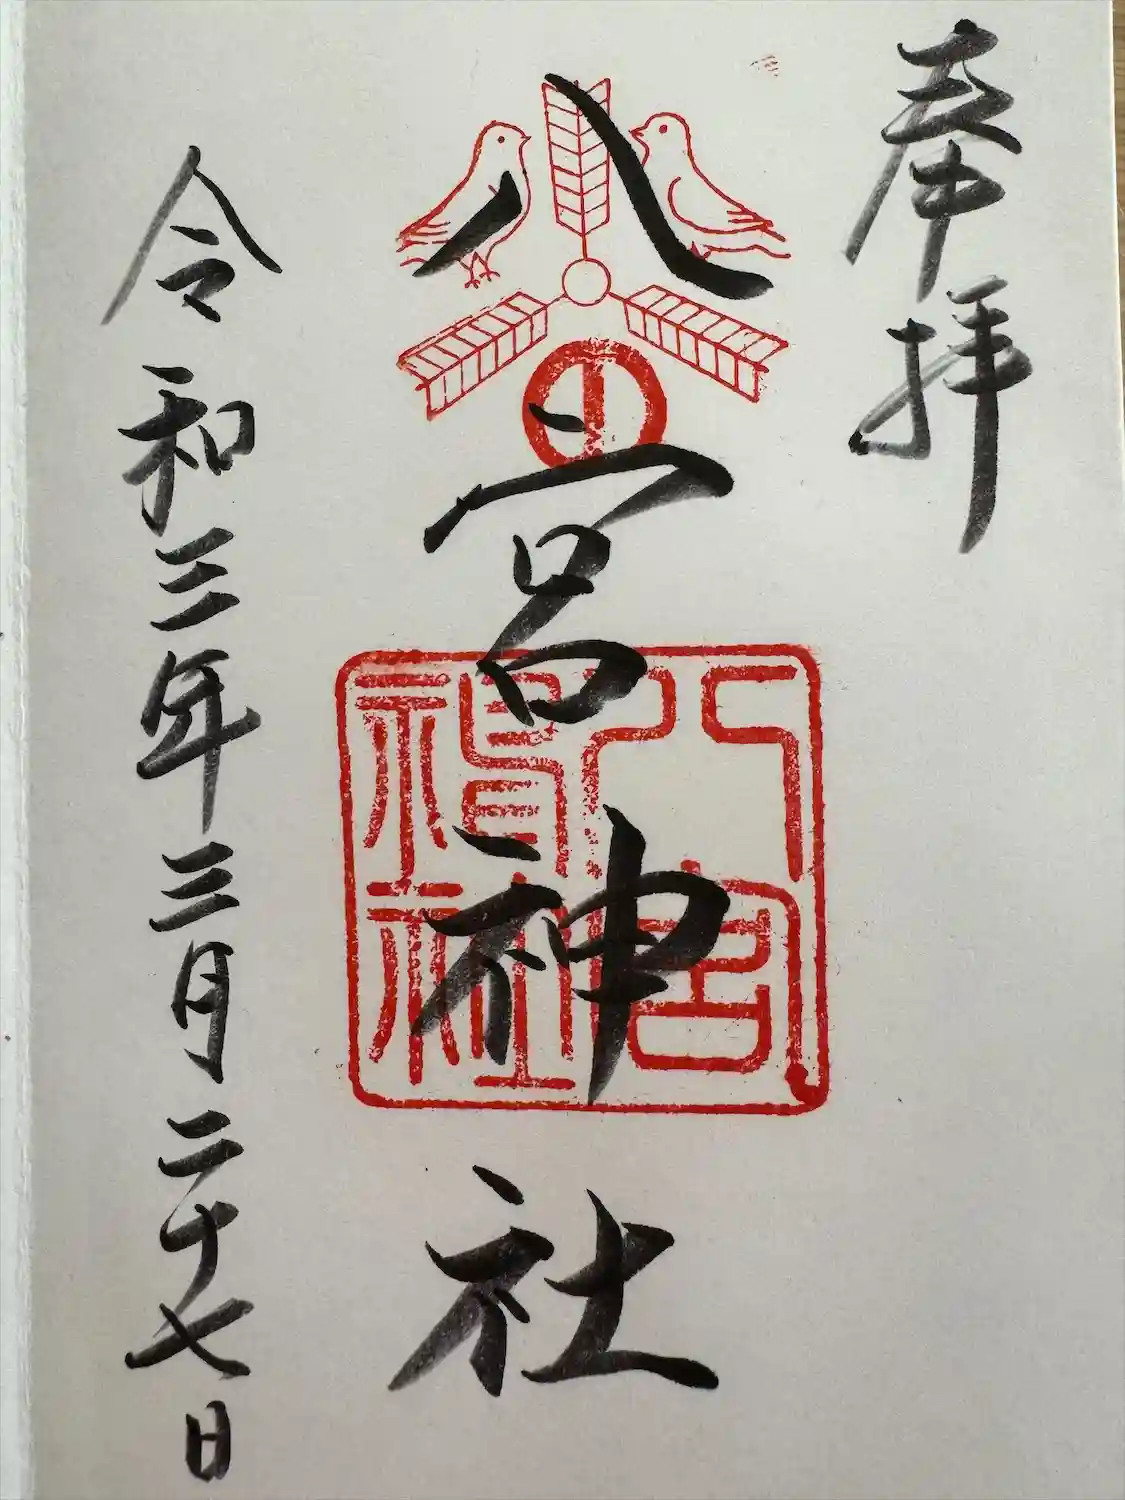 奉拝
八宮神社
八宮神社
令和三年三月二十七日